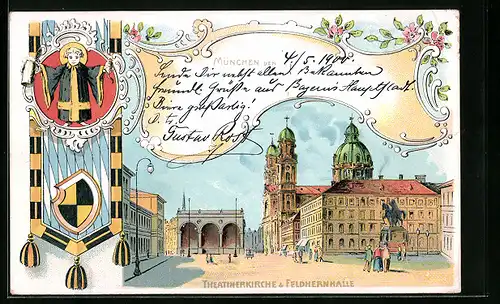 MÜNCHEN DEN 4/5. 1900.
Sende Dir nebst allen Bekannten
freundl. Grüße aus Bayerns Hauptstadt.
großartig!
Gustav
THEATINERKIRCHE & FELDHERNHALLE